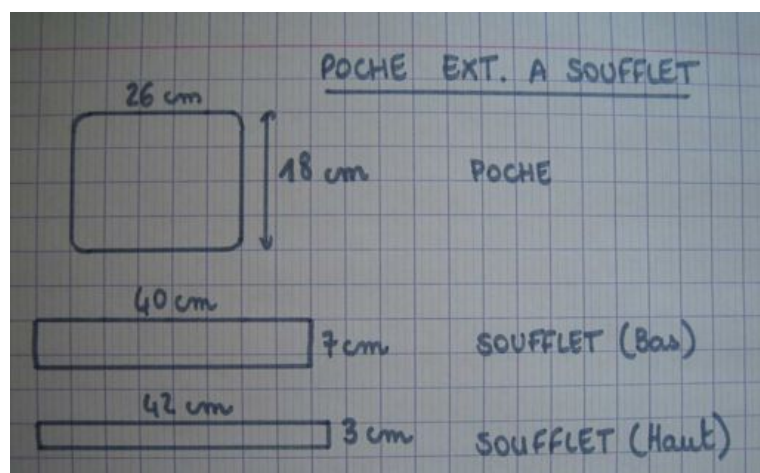 POCHE EXT. A SOUFFLET
26 cm
18 cm
POCHE
40 cm
7 cm
SOUFFLET (Bas)
42 cm
3 cm
SOUFFLET (Haut)